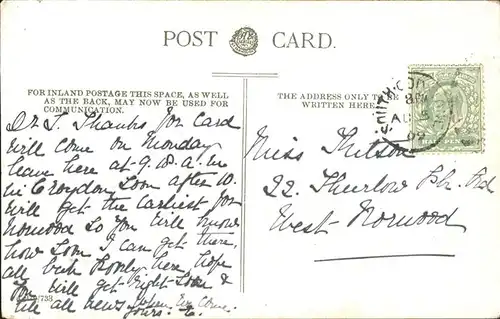 POST CARD.
FOR INLAND POSTAGE THIS SPACE, AS WELL
AS THE BACK, MAY NOW BE USED FOR
COMMUNICATION.
THE ADDRESS ONLY TO BE
WRITTEN HERE.
Dr J. Thanks for card
Will come on Monday
leave here at 9.
in Croydon soon after 10.
Will get the earliest for
Norwood So you will know
how soon I can get there,
all bush here, hope
you will get right soon &
tell all news when we come.
yours
Miss
22. Thurlow Rd
West Norwood
SOUTH CROY
AU
07
HALF PENNY